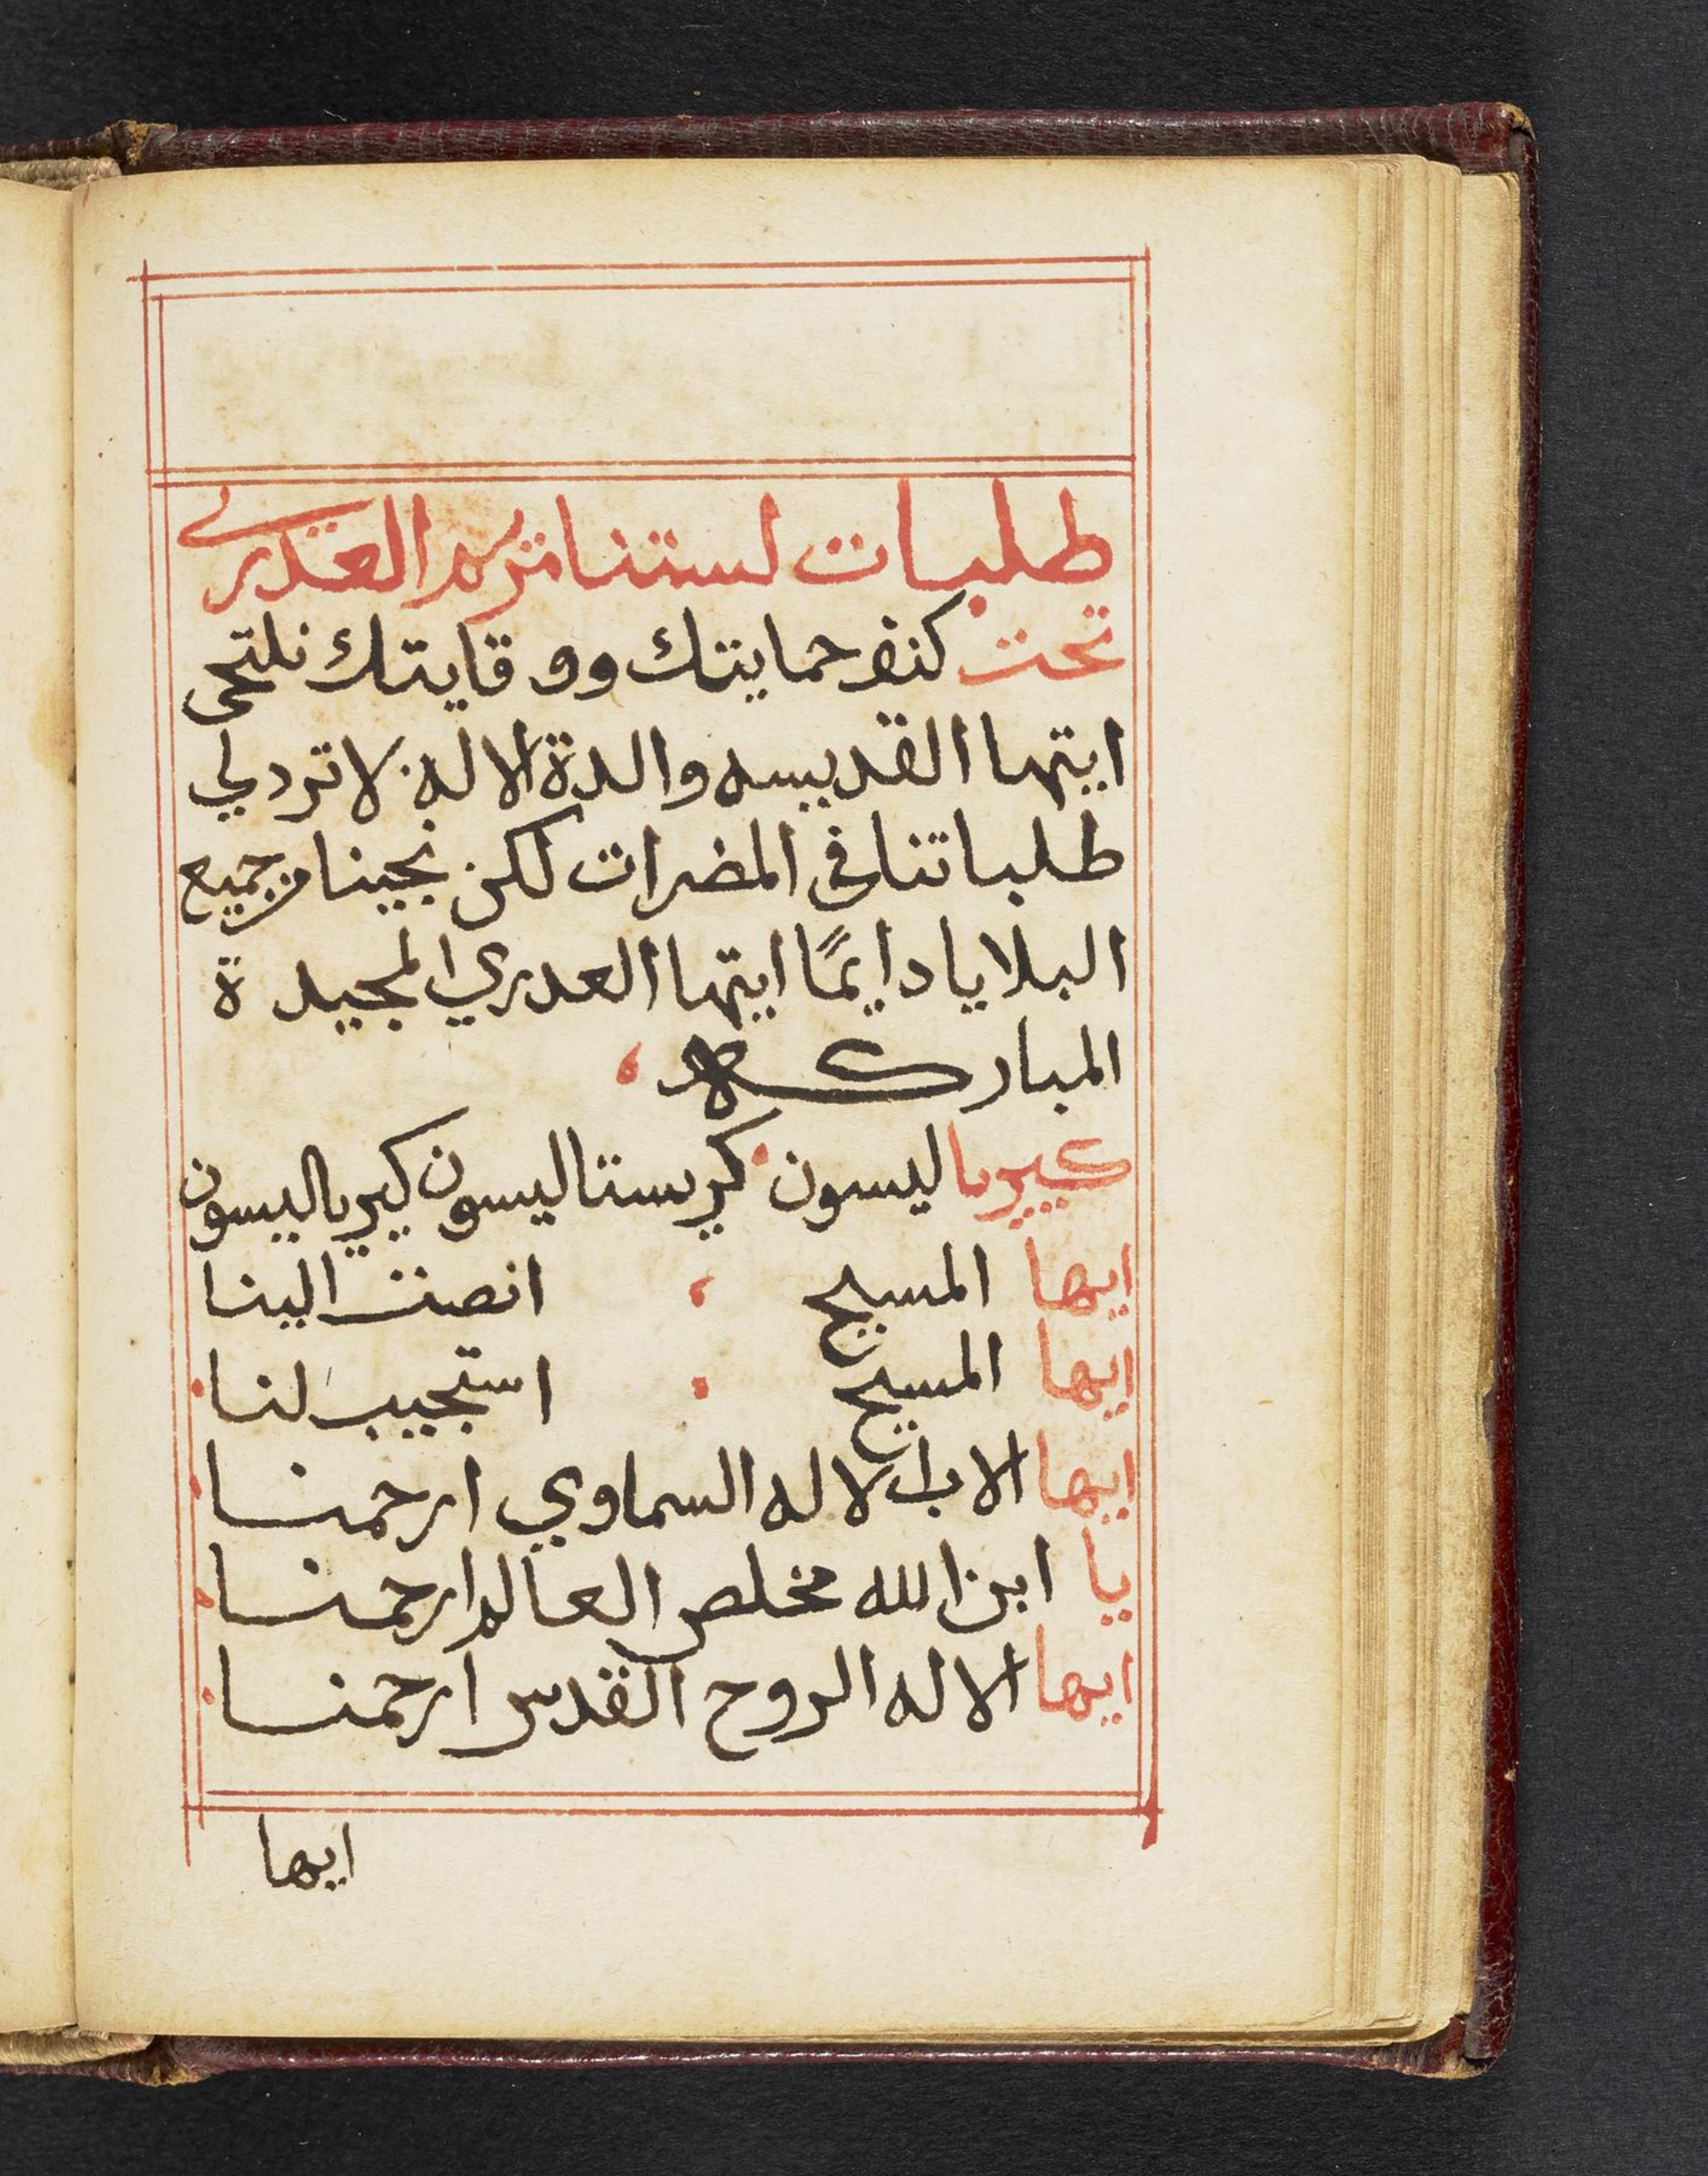 طلبات لستنا مريم العدرى
تحت كنف حمايتك ووقايتك نلتجى
ايتها القديسه والدة الاله لا تردلي
طلباتنا في المضرات لكن نجينا من جميع
البلايا دايمًا ايتها العدري المجيدة
المباركه
كييريا ليسون كريستا ليسون كيريا ليسون
ايها المسيح انصت الينا
ايها المسيح استجيب لنا
ايها الاب الاله السماوي ارحمنا
يا ابن الله مخلص العالم ارحمنا
ايها الاله الروح القدس ارحمنا
ايها